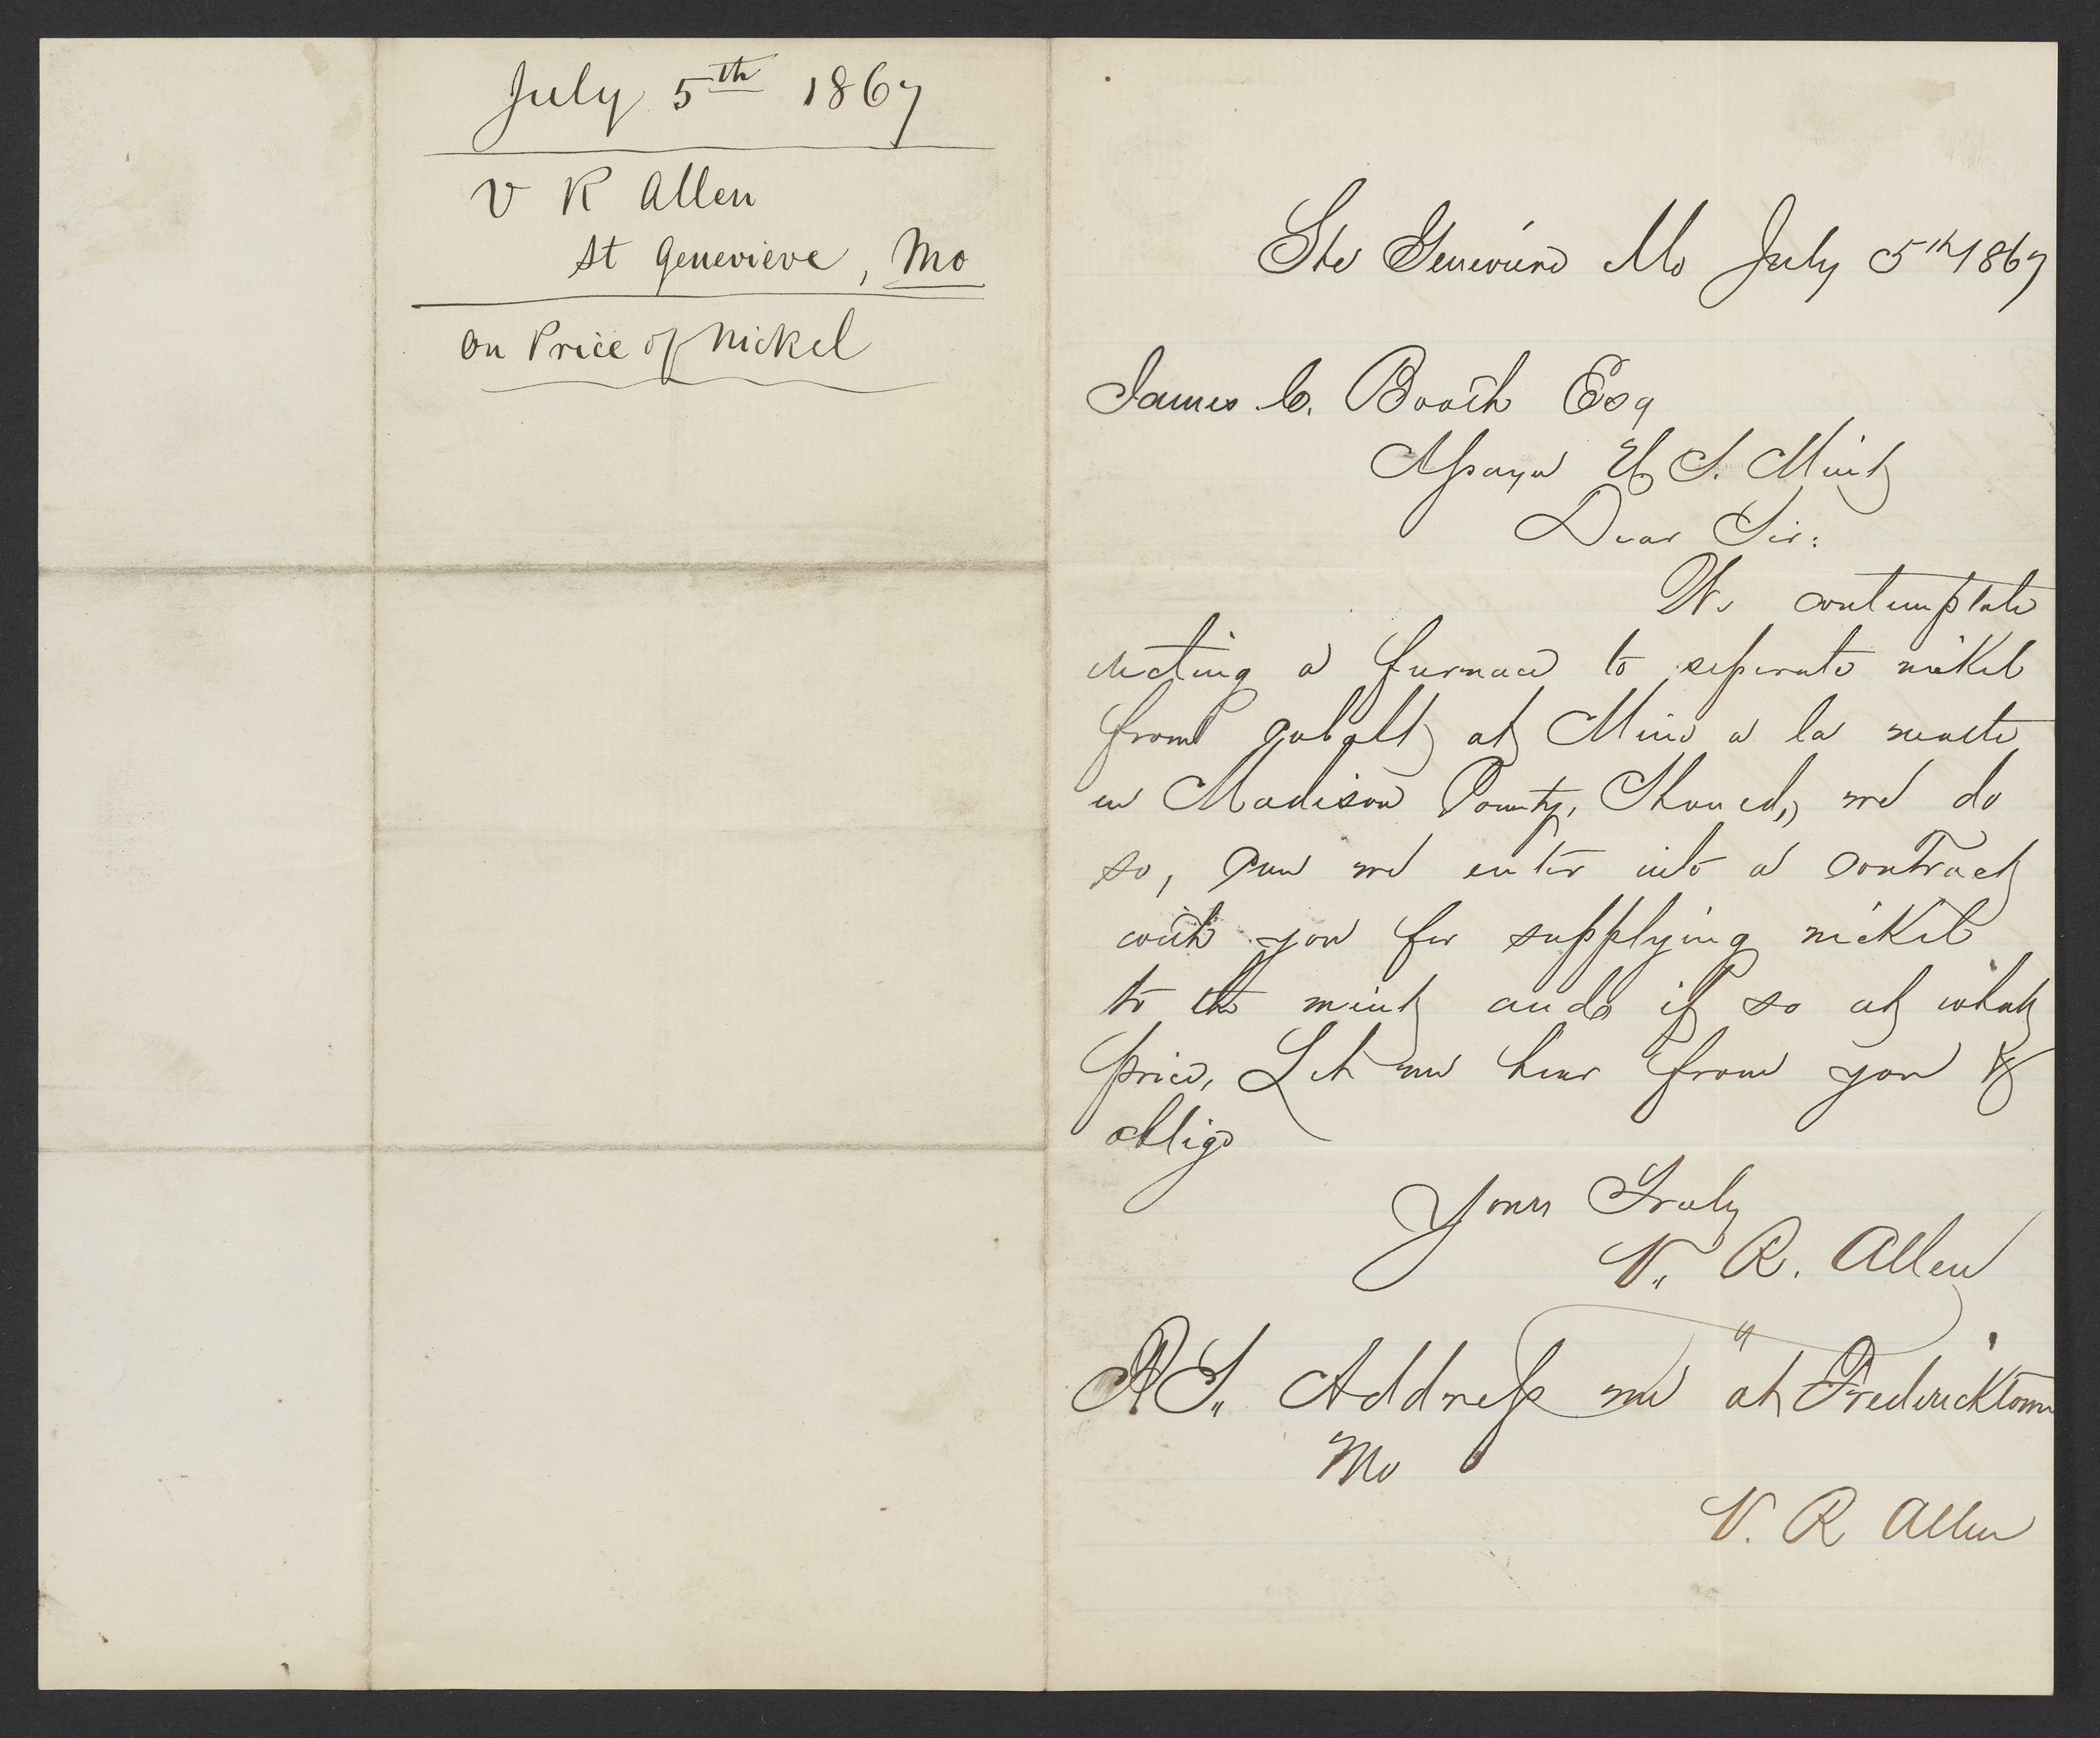 July 5th 1867
V R Allen
St Genevieve, Mo
On Price of Nickel
Ste Genevieve Mo July 5th 1867
James C. Booth Esq
Assayer U. S. Mint
Dear Sir:
We contemplate
erecting a furnace to seperate nickel
from cobalt at Mine a la motte
in Madison County, Should, we do
so, Can we enter into a contract
with you for supplying nickel
to the mint and if so at what
price, Let me hear from you &
oblige
Yours Truly
V. R. Allen
P.S. Address me at Fredericktown
Mo
V. R Allen